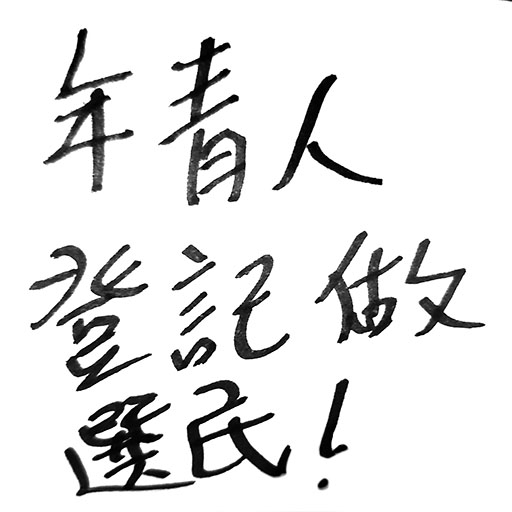 年青人
登記做
選民！